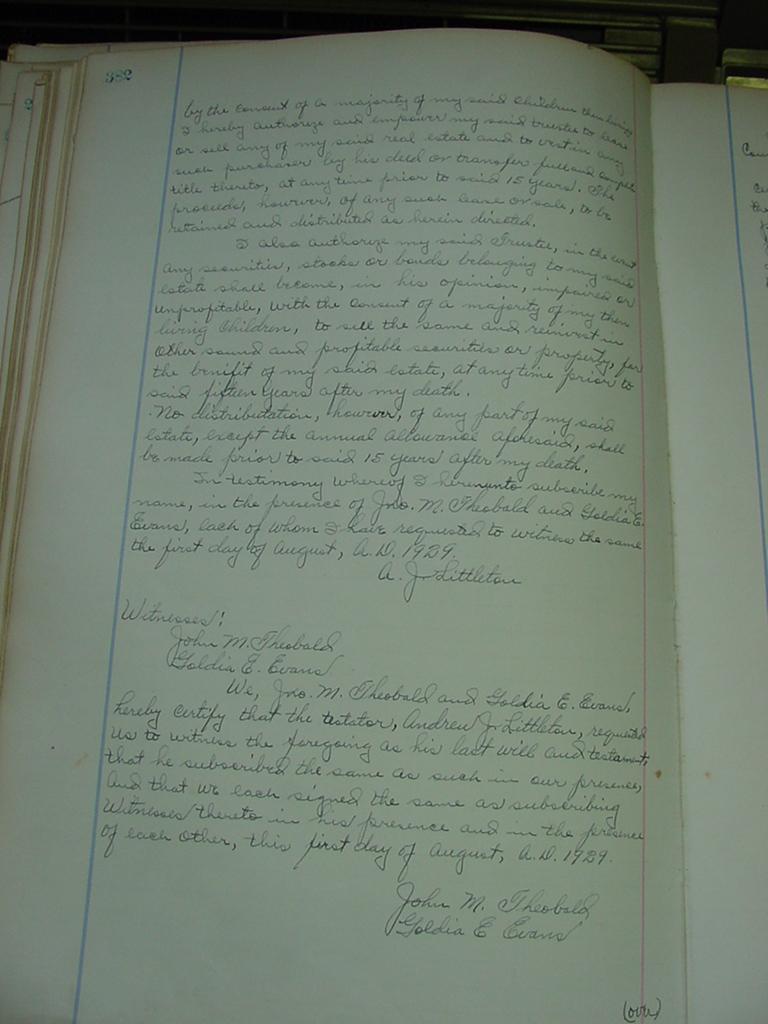 382
by the consent of a majority of my said children then living
I hereby authorize and empower my said trustee to lease
or sell any of my said real estate and to vest in any
such purchaser by his deed or transfer full and complete
title thereto, at any time prior to said 15 years. The
proceeds, however, of any such lease or sale, to be
retained and distributed as herein directed.
I also authorize my said Trustee, in the event
any securities, stocks or bonds belonging to my said
estate shall become, in his opinion, impaired or
unprofitable, with the consent of a majority of my then
living children, to sell the same and reinvest in
other sound and profitable securities or property, for
the benifit of my said estate, at any time prior to
said fifteen years after my death.
No distributation, however, of any part of my said
estate, except the annual allowance aforesaid, shall
be made prior to said 15 years after my death.
In testimony whereof I hereunto subscribe my
name, in the presence of Jno. M. Theobald and Goldia E.
Evans, each of whom I have requested to witness the same
the first day of August, A.D. 1929.
A. J. Littleton
Witnesses:
John M. Theobald
Goldia E. Evans
We, Jno. M. Theobald and Goldia E. Evans,
hereby certify that the testator, Andrew J. Littleton, requested
us to witness the foregoing as his last will and testament,
that he subscribed the same as such in our presence,
and that we each signed the same as subscribing
Witnesses thereto in his presence and in the presence
of each other, this first day of August, A.D. 1929.
John M. Theobald
Goldia E Evans
(over)